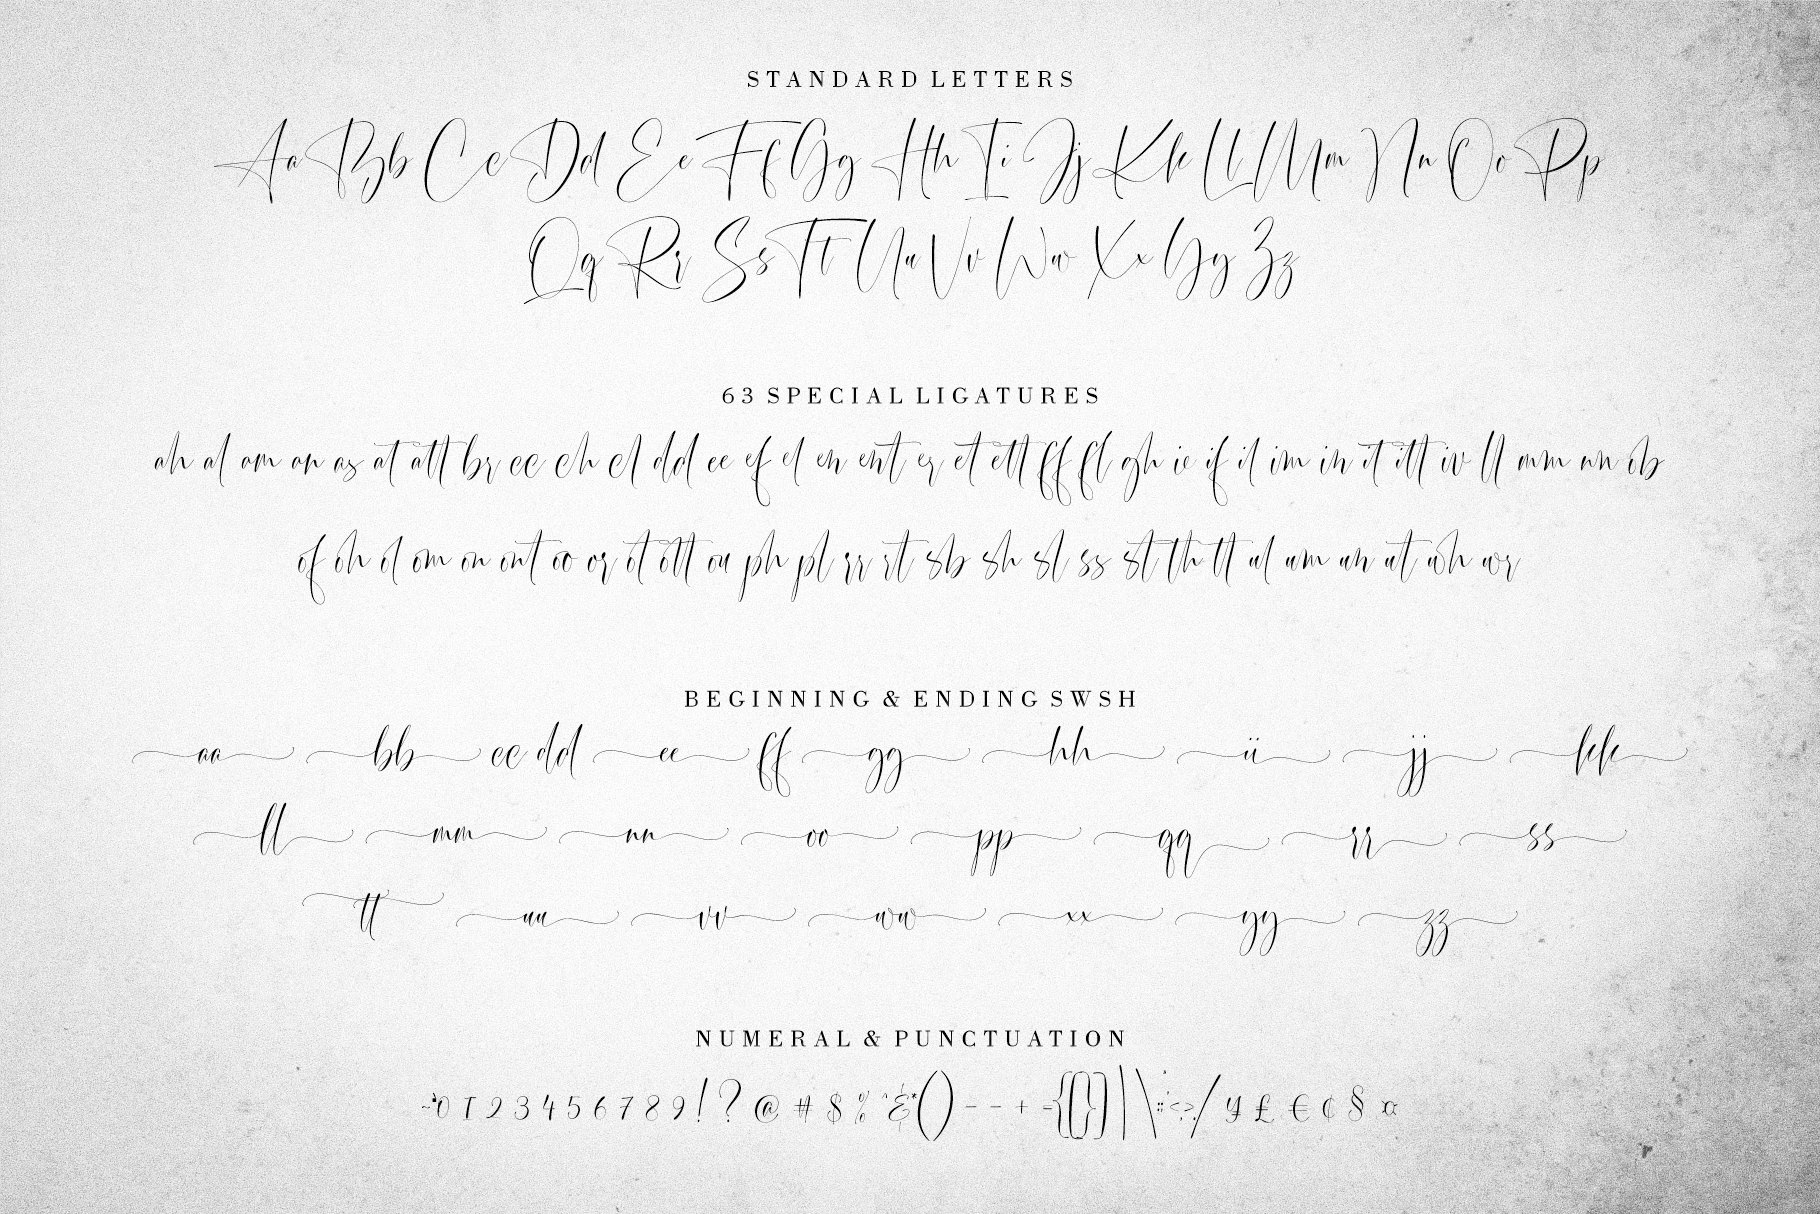 STANDARD LETTERS
Aa Bb Cc Dd Ee Ff Gg Hh Ii Jj Kk Ll Mm Nn Oo Pp
Qq Rr Ss Tt Uu Vv Ww Xx Yy Zz
63 SPECIAL LIGATURES
ah al am an as at att br cc ch cl dd ee ef el en ent er et ett ff fl gh ie if il im in it itt iv ll mm nn ob
of oh ol om on ont oo or ot ott ou ph pl rr rt sb sh sl ss st th tt ul um un ut wh wr
BEGINNING & ENDING SWSH
aa bb cc dd ee ff gg hh ii jj kk
ll mm nn oo pp qq rr ss
tt uu vv ww xx yy zz
NUMERAL & PUNCTUATION
0 1 2 3 4 5 6 7 8 9 ! ? @ # $ % ^ & * ( ) - – + = { [ } ] | \ : ; < > / ¥ £ € ¢ § ¤